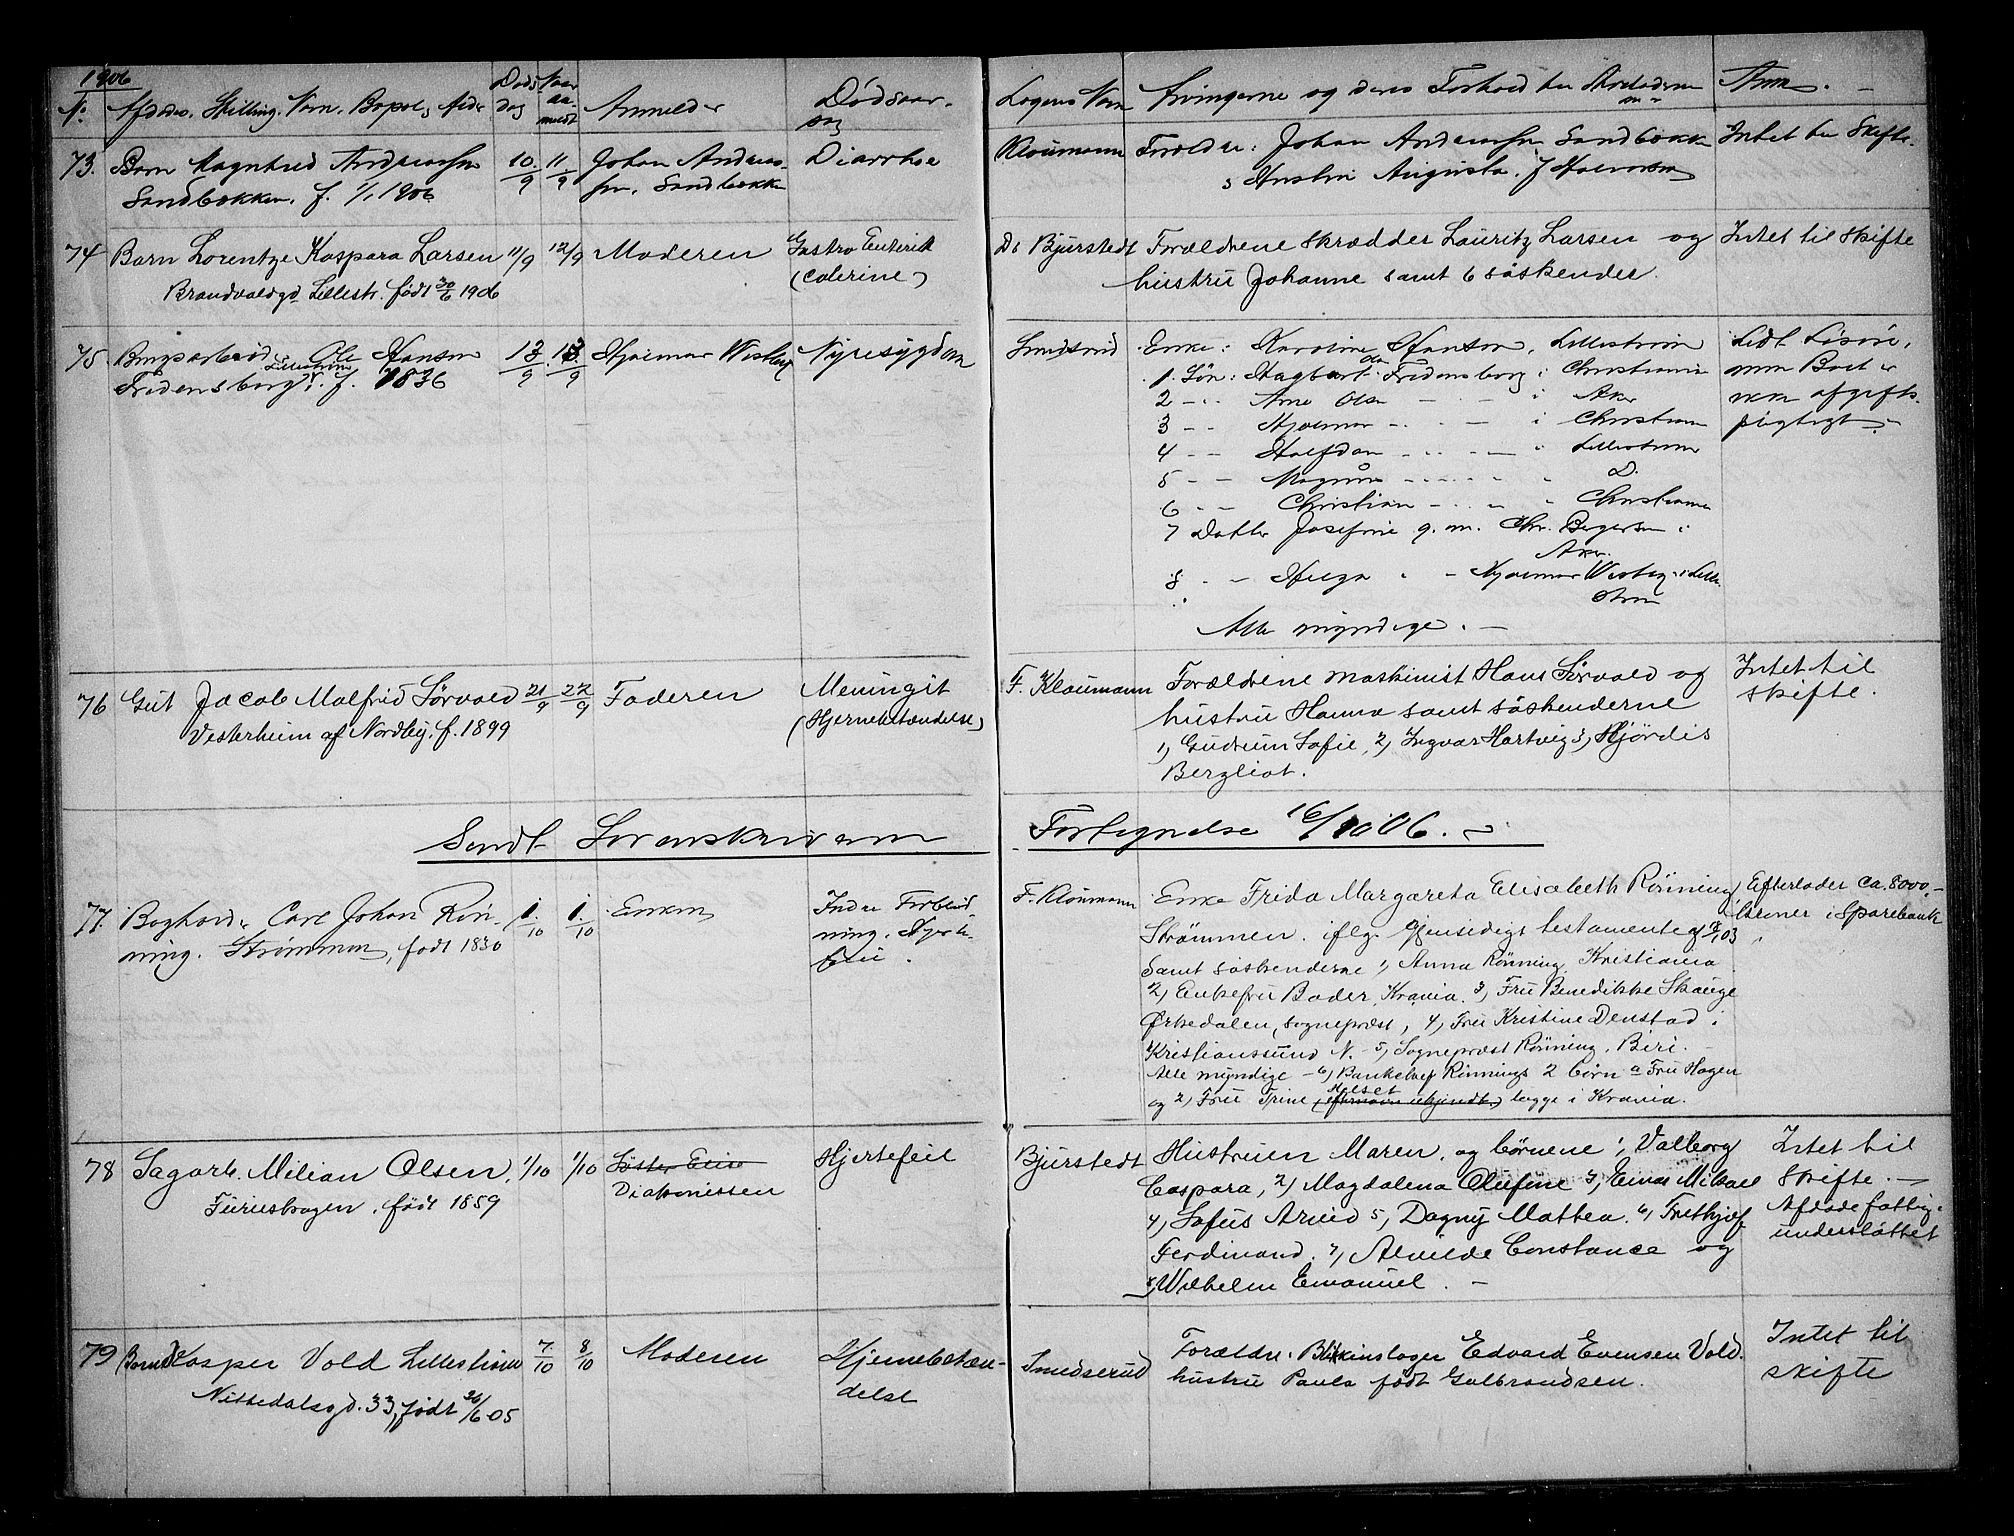 1906
No Afdødes Stilling, Navn, Bopæl, Alder
Døds dag
Naar anmeldt
Anmelder
Dødsaarsag
73. Barn Magnhild Andreassen
Sandbækken. f. 1/1 1906
10/9 11/9
Johan Andreassen, Sandbækken
Diarrhoe
74 Barn Lorentze Kaspara Larsen
Brandvaldgd Lillestr. født 30/6 1906
11/9 12/9
Moderen
Gastro Enterit
(colerine)
75 Ole Hansen
Fridensborg, Lillestrøm. f. 1836
13/9
Hjalmar Westby
Nyresygdom
76 Gut Jacob Malfrid Sørvald
Vesterheim af Nordby, f. 1899
21/9 22/9
Faderen
Meningit
(Hjernebetændelse)
Sendt Sorenskriveren
77. Carl Johan Rønning. Strømmen, født 1830
1/10 1/10
Enken
Indre Forblødning.
78 Sagarb. Milian Olsen,
Furuskogen, født 1859
1/10 1/10
Søster Elise
Diakonissen
Hjertefeil
79 Barnet Kasper Vold Lillestrøm
Nittedalsgd. 33, født 26/6 05
7/10 8/10
Moderen
Hjernebetændelse
Lægens Navn
Arvingerne og deres Forhold til Afdøde
Anm.
Kloumann
Forældre: Johan Andreassen Sandbækken
& Hustru Augusta f Halvorsen
Intet til Skifte.
Dr Bjurstedt
Forældrene Skrædder Lauritz Larsen og
hustru Johanne samt 6 søskender.
Intet til Skifte
Smedsrud
Enke: Karoline Hansen, Lillestrøm
1. Søn: Hagbart Olsen Fridensborg i Christiania
2 - - Arne Olsen - - i Aker
3 - - Hjalmar - - i Christiania
4 - - Halfdan - - " Lillestrøm
5 - - Magnus - - " Do
6 - - Christian - - " Christiania
7 Datter Josefine g. m. Chr. Bergersen i
Aker.
8 - - Helga " - Hjalmar Westby i Lille
strøm
Alle myndige. -
Lidt Løsøre,
men Boet er
ikke afgifts-
pligtigt
F. Kloumann
Forældrene maskinist Hans Sørvald og
hustru Hanna samt søskenderne
1, Gudrun Sofie, 2, Ingvar Hartvig 3, Hjördis
Bergliot.
Intet til
skifte.
Fortegnelse 16/10 06. -
F. Kloumann
Enke Frida Margareta Elisabeth Rønning
Strømmen. iflg. gjensidigt testamente af
samt søskenderne 1, Anna Rønning, Kristiania
2, Enkefru Bader, Krania. 3, Fru Benedikke Skauge
Ørkedalen, sogneprest, 4, Fru Kristine Denstad i
Kristianssund N. - 5, Sogneprest Rønning, Biri. -
Alle myndige - 6, Rønnings 2 børn a Fru Hagen
og 2, Fru Trine Helset (efternavn ukjendt) begge i Krania.
Efterlader ca. 8000,-
kroner i Sparebank
Bjurstedt
Hustruen Maren, og børnene 1, Valborg
Caspara, 2, Magdalena Olufine 3, Einar Mikael
4, Sofus Arvid 5, Dagny Mathea. 6, Frithjof
Ferdinand. 7, Alvilde Constance og
8, Wilhelm Emanuel. -
Intet til
Skifte. -
Afdøde fattig-
understøttet
Smedserud
Forældre: Blikkenslager Edvard Evensen Vold.
hustru Paula født Gulbrandsen.
Intet til
skifte